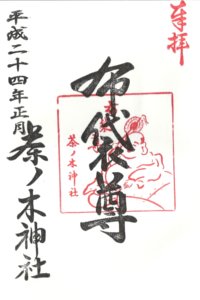 奉拝
布袋尊
茶ノ木神社
茶ノ木神社
平成二十四年正月